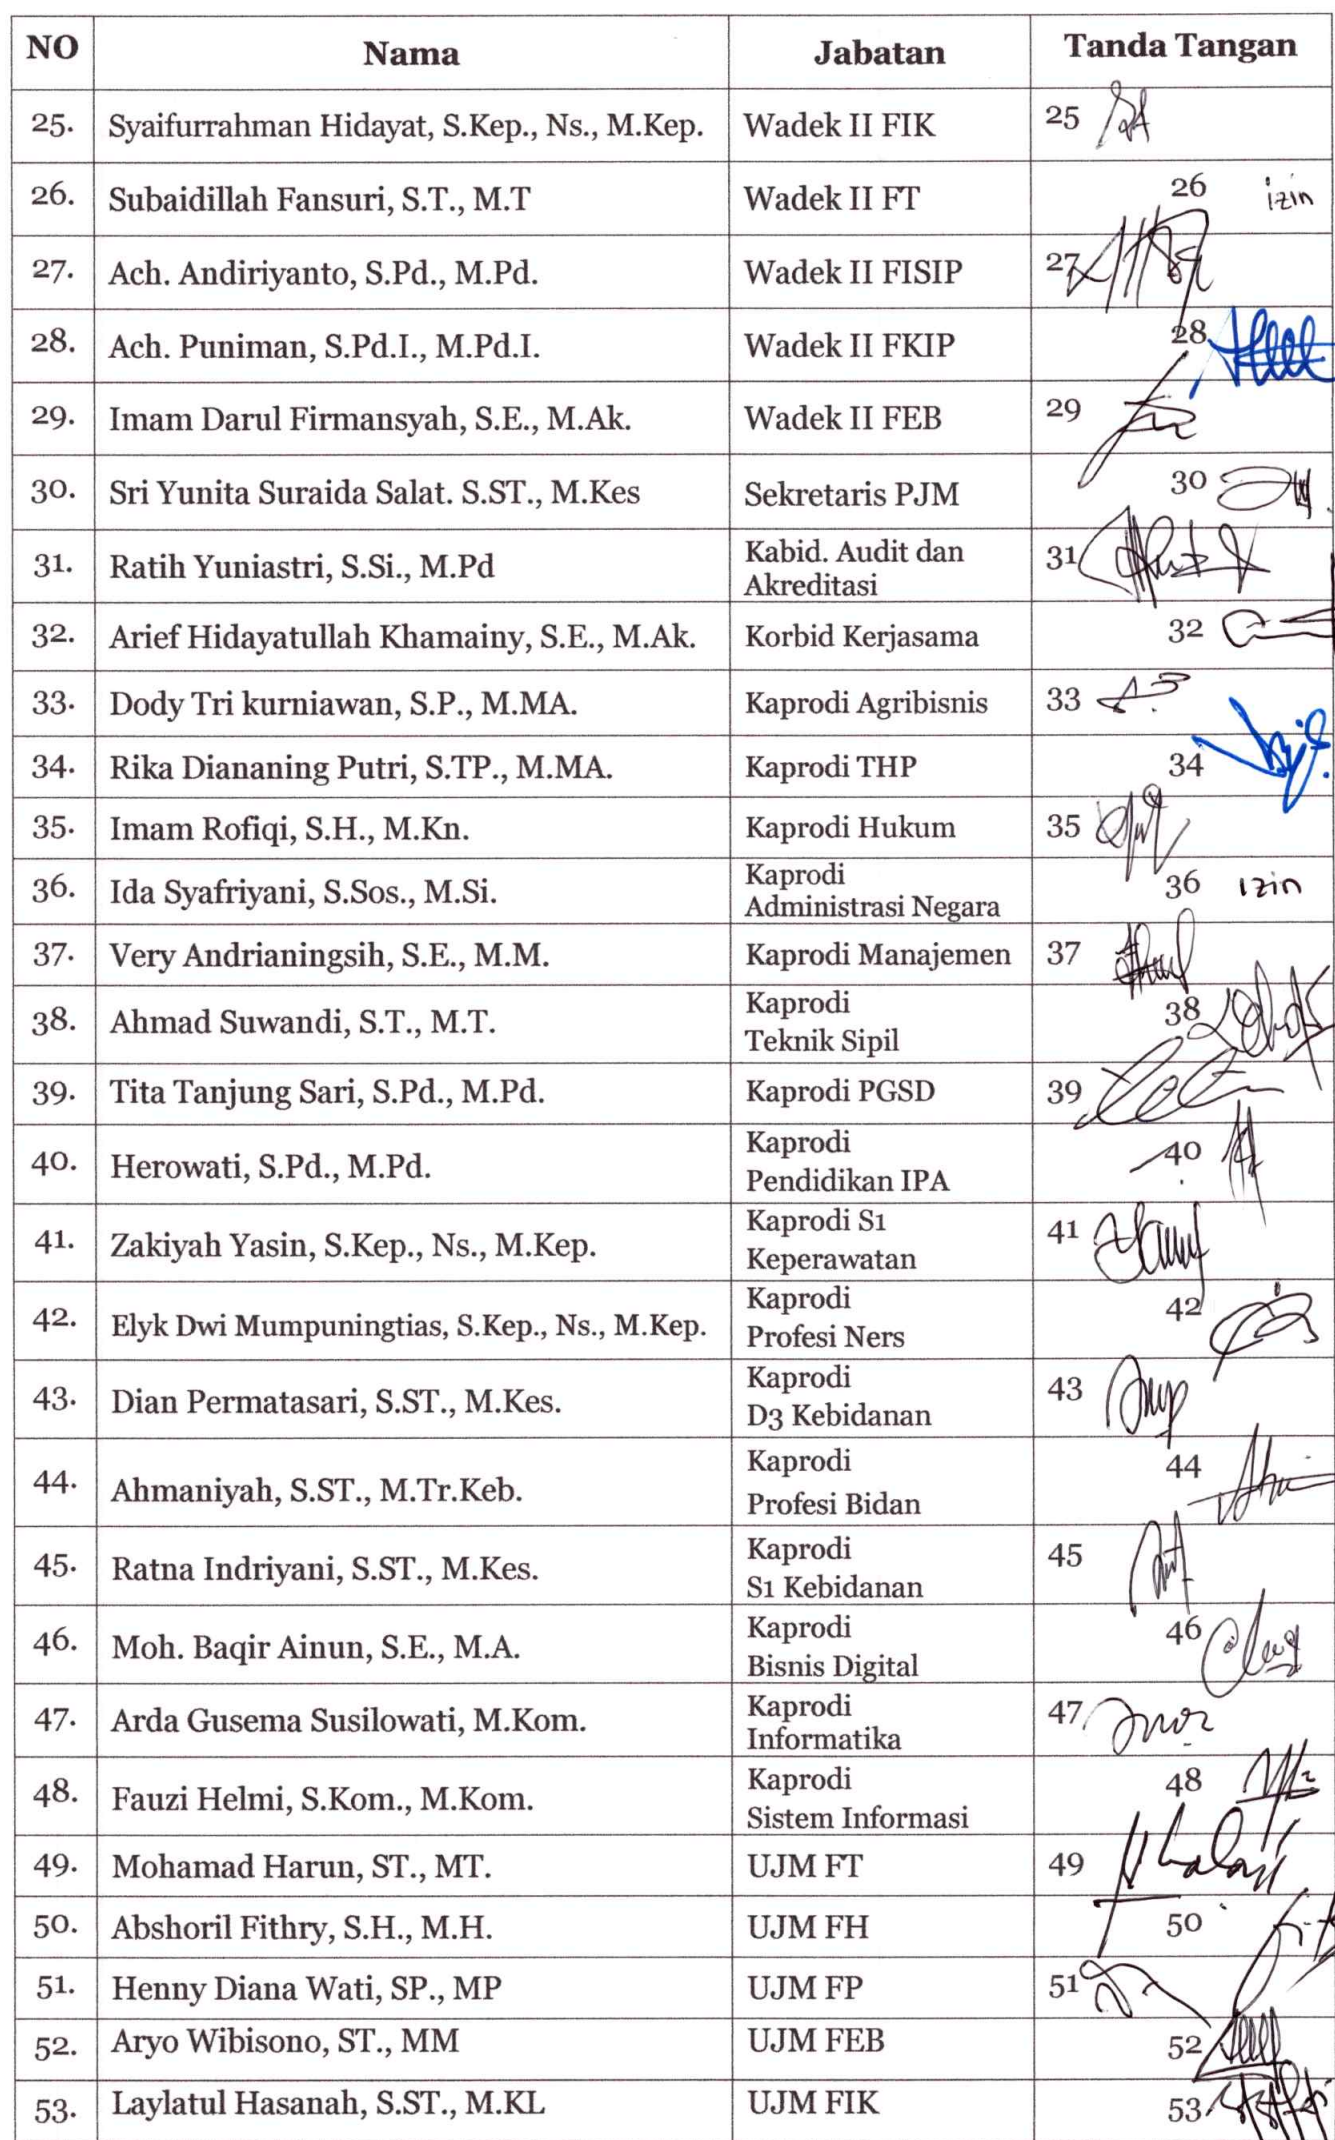 NO Nama Jabatan Tanda Tangan
25. Syaifurrahman Hidayat, S.Kep., Ns., M.Kep. Wadek II FIK 25
26. Subaidillah Fansuri, S.T., M.T Wadek II FT 26 izin
27. Ach. Andiriyanto, S.Pd., M.Pd. Wadek II FISIP 27
28. Ach. Puniman, S.Pd.I., M.Pd.I. Wadek II FKIP 28
29. Imam Darul Firmansyah, S.E., M.Ak. Wadek II FEB 29
30. Sri Yunita Suraida Salat. S.ST., M.Kes Sekretaris PJM 30
31. Ratih Yuniastri, S.Si., M.Pd Kabid. Audit dan 31
Akreditasi
32. Arief Hidayatullah Khamainy, S.E., M.Ak. Korbid Kerjasama 32
33. Dody Tri kurniawan, S.P., M.MA. Kaprodi Agribisnis 33
34. Rika Diananing Putri, S.TP., M.MA. Kaprodi THP 34
35. Imam Rofiqi, S.H., M.Kn. Kaprodi Hukum 35
36. Ida Syafriyani, S.Sos., M.Si. Kaprodi 36 izin
Administrasi Negara
37. Very Andrianingsih, S.E., M.M. Kaprodi Manajemen 37
38. Ahmad Suwandi, S.T., M.T. Kaprodi 38
Teknik Sipil
39. Tita Tanjung Sari, S.Pd., M.Pd. Kaprodi PGSD 39
40. Herowati, S.Pd., M.Pd. Kaprodi 40
Pendidikan IPA
41. Zakiyah Yasin, S.Kep., Ns., M.Kep. Kaprodi S1 41
Keperawatan
42. Elyk Dwi Mumpuningtias, S.Kep., Ns., M.Kep. Kaprodi 42
Profesi Ners
43. Dian Permatasari, S.ST., M.Kes. Kaprodi 43
D3 Kebidanan
44. Ahmaniyah, S.ST., M.Tr.Keb. Kaprodi 44
Profesi Bidan
45. Ratna Indriyani, S.ST., M.Kes. Kaprodi 45
S1 Kebidanan
46. Moh. Baqir Ainun, S.E., M.A. Kaprodi 46
Bisnis Digital
47. Arda Gusema Susilowati, M.Kom. Kaprodi 47
Informatika
48. Fauzi Helmi, S.Kom., M.Kom. Kaprodi 48
Sistem Informasi
49. Mohamad Harun, ST., MT. UJM FT 49
50. Abshoril Fithry, S.H., M.H. UJM FH 50
51. Henny Diana Wati, SP., MP UJM FP 51
52. Aryo Wibisono, ST., MM UJM FEB 52
53. Laylatul Hasanah, S.ST., M.KL UJM FIK 53